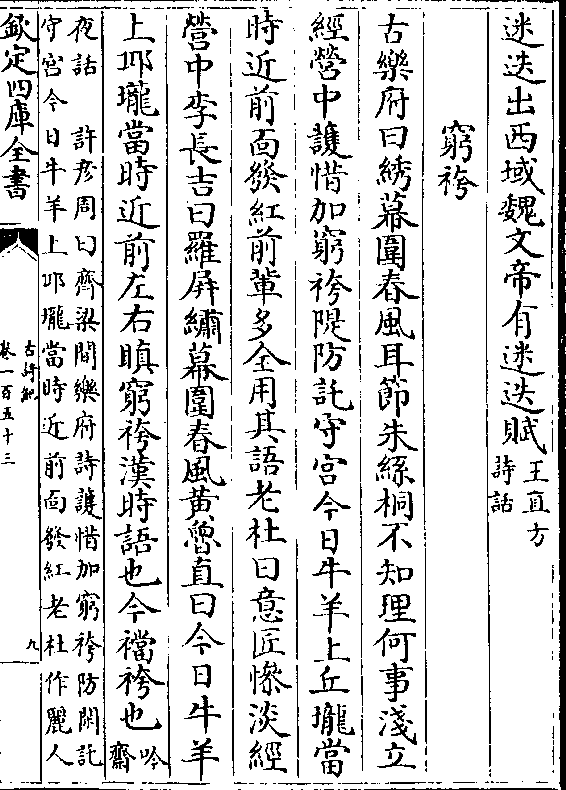 迷迭出西域魏文帝有迷迭賦王直方
詩話
窮袴
古樂府曰綉幕圍春風耳節朱絲桐不知理何事淺立
經營中護惜加窮袴隄防託守宮今日牛羊上丘壠當
時近前面發紅前輩多全用其語老杜曰意匠慘淡經
營中李長吉曰羅屏繡幕圍春風黃魯直曰今日牛羊
上邱壠當時近前左右瞋窮袴漢時語也今襠袴也吟
齋
夜話　許彥周曰齊梁間樂府詩護惜加窮袴防閑託
守宮今日牛羊上邱壠當時近前面發紅老杜作麗人
欽定四庫全書
古詩紀
卷一百五十三
九